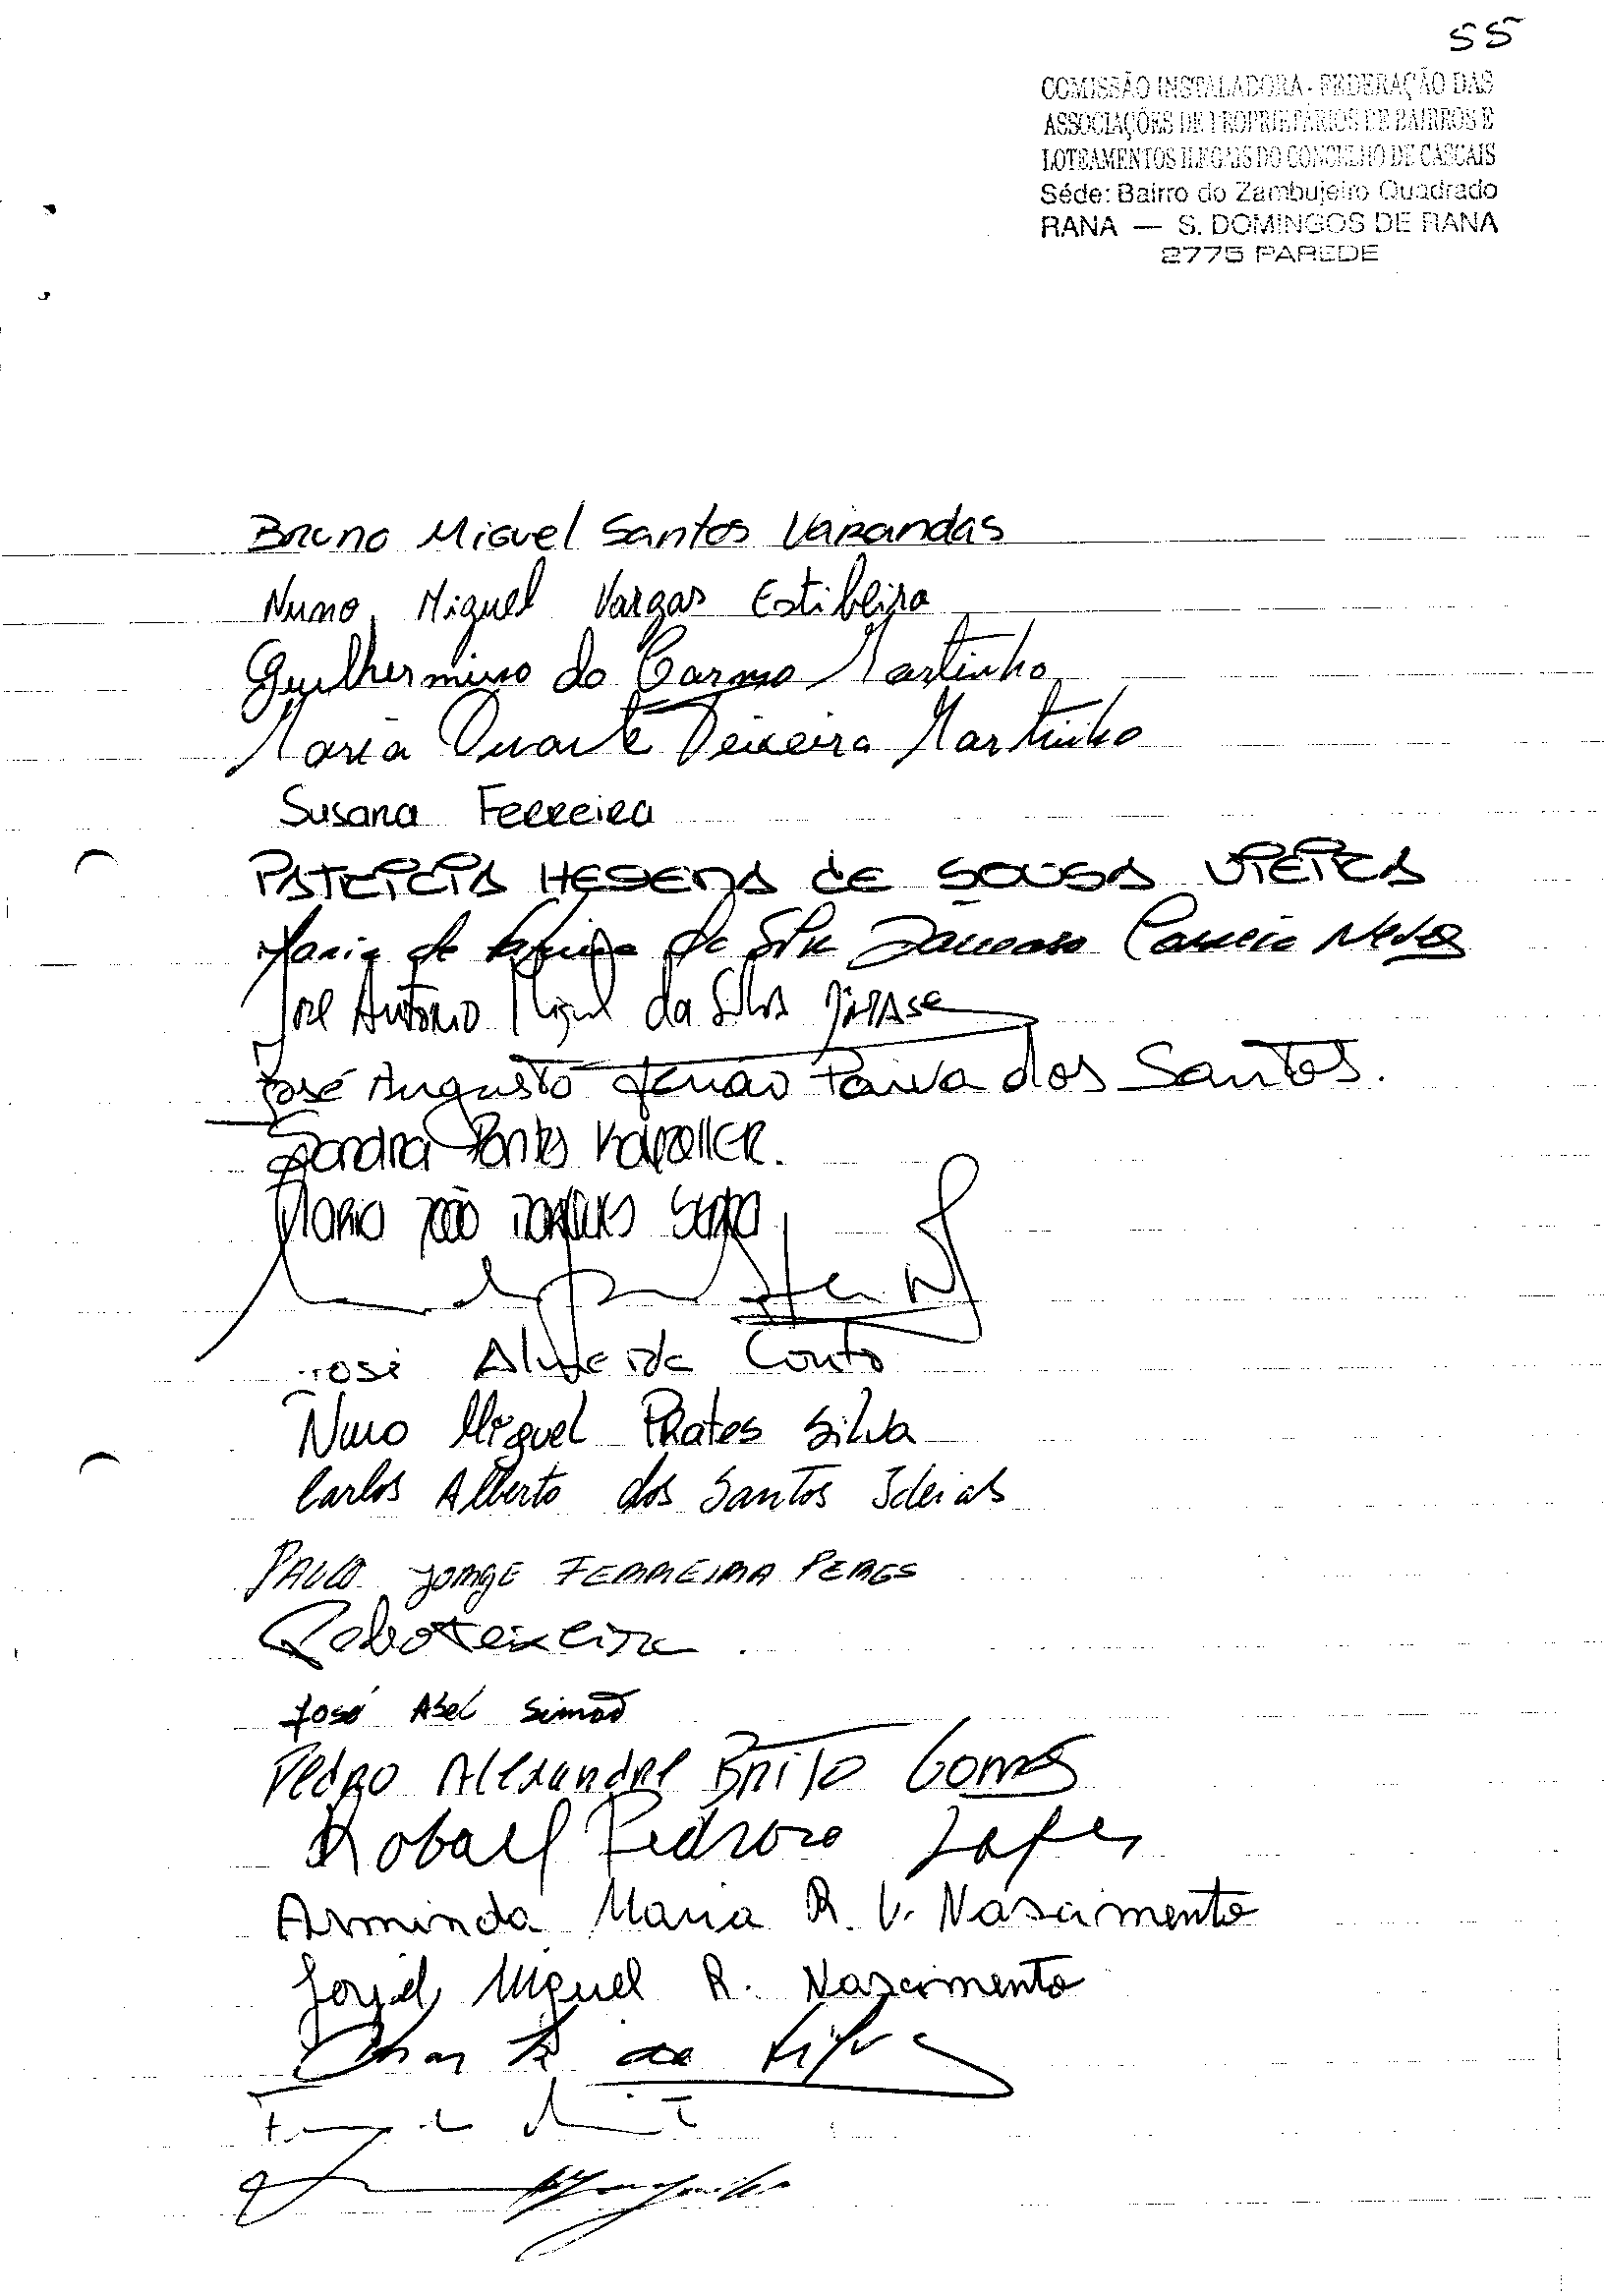 55
COMISSÃO INSTALADORA - FEDERAÇÃO DAS
ASSOCIAÇÕES DE PROPRIETÁRIOS DE BAIRROS E
LOTEAMENTOS ILEGAIS DO CONCELHO DE CASCAIS
Séde: Bairro do Zambujeiro Quadrado
RANA — S. DOMINGOS DE RANA
2775 PAREDE
Bruno Miguel Santos Varandas
Nuno Miguel Vargas Estibeira
Guilhermino do Carmo Martinho
Maria Duarte Teixeira Martinho
Susana Ferreira
PATRICIA HELENA de SOUSA VIEIRA
Maria de da Correia Neves
José António Miguel da Silva
José Augusto Paiva dos Santos.
Sandra Pontes
Maria João
José Almeida Couto
Nuno Miguel Prates Silva
Carlos Alberto dos Santos Ideias
PAULO JORGE FERREIRA PERES
Teixeira
José Abel Simão
Pedro Alexandre Brito Gomes
Pedroso Lopes
Arminda Maria R. V. Nascimento
Miguel R. Nascimento
da Silva